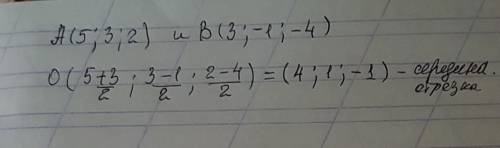 A(5; 3; 2) и B(3; -1; -4)
O(5+3/2; 3-1/2; 2-4/2) = (4; 1; -1) - середина
отрезка